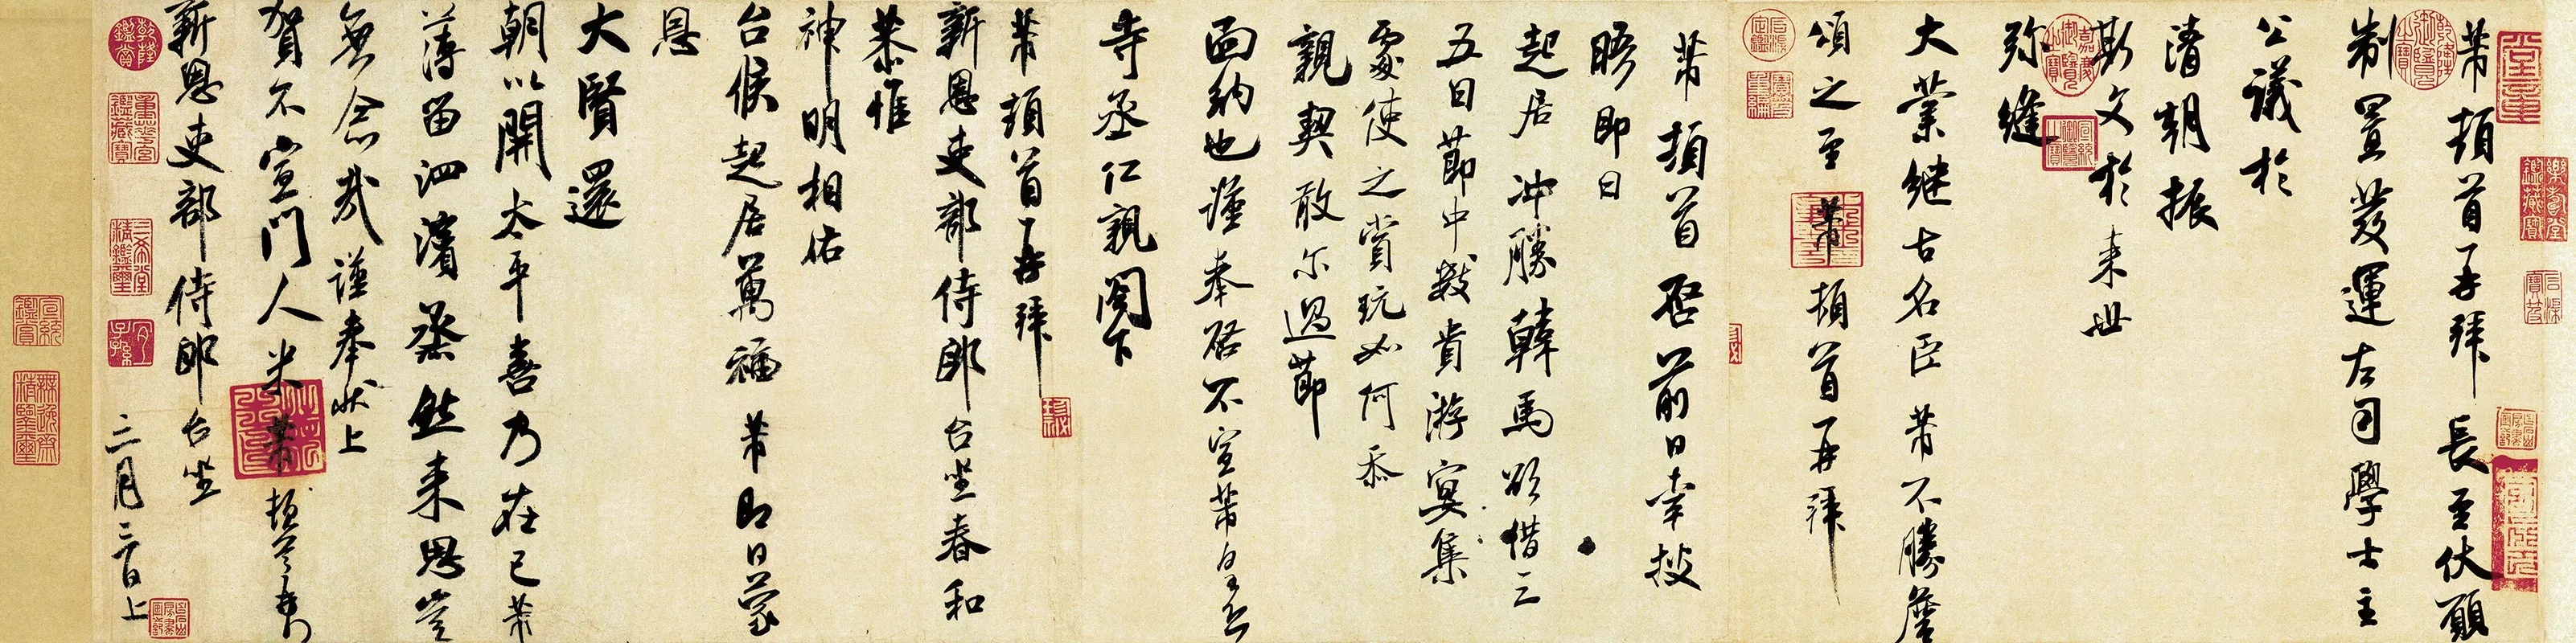 芾頓首再拜長至伏願
制置發運左司學士主
公議於
清朝振
斯文於來世
弥縫
大業継古名臣芾不勝詹
頌之至芾頓首再拜
芾頓首啓前日幸披
晤即日
起居沖勝韓馬欲借三
五日節中數貴游宴集
處使之賞玩如何忝
親契敢尓過節
面納也謹奉啓不宣芾
寺丞仁親閣下
芾頓首再拜
新恩吏部侍郎台坐春和
恭惟
神明相佑
台候起居萬福芾即日蒙
恩
大賢還
朝以開太平喜乃在已芾
薄留泗濱烝然来思豈
無念哉謹奉狀上
賀不宣門人米芾頓首
新恩吏部侍郎台坐
三月三日上